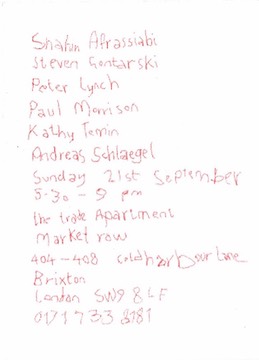 Shahin Afrassiabi
Steven Gontarski
Peter Lynch
Paul Morrison
Kathy Temin
Andreas Schlaegel
Sunday 21st September
5-30 - 9 pm
the trade Apartment
market row
404-408 coldharbour Lane
Brixton
London SW9 8LF
0171733 8181